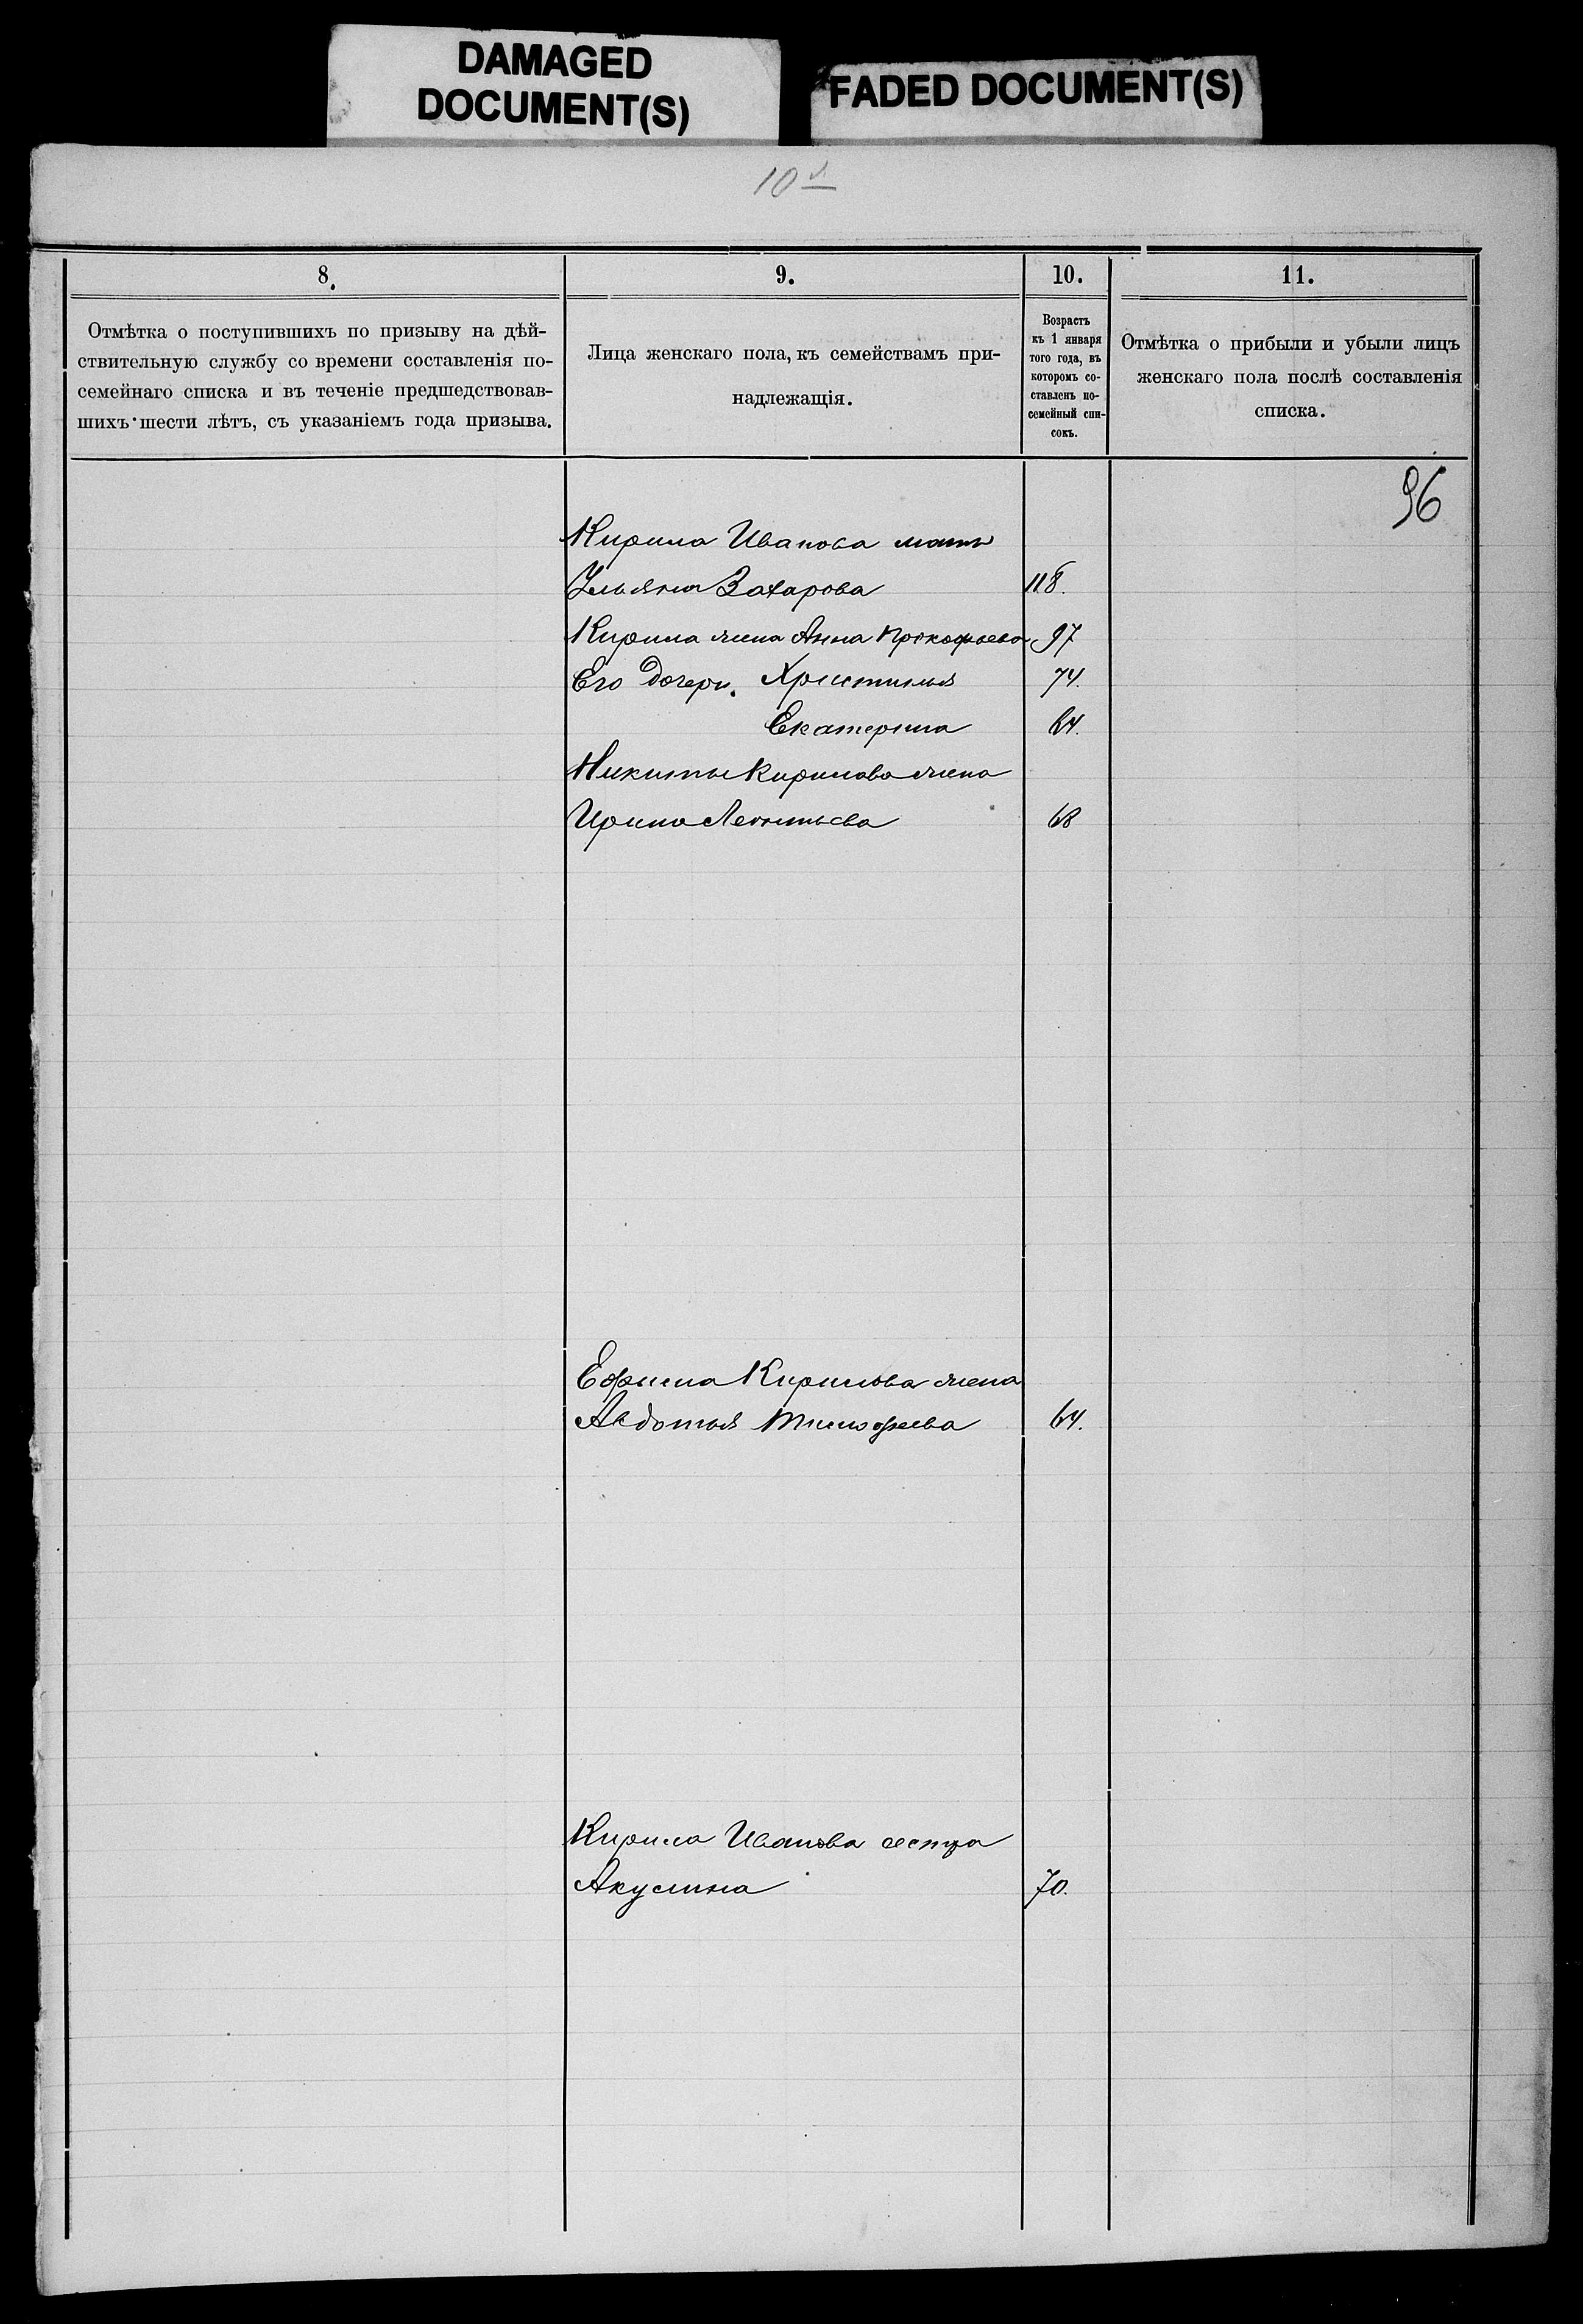 DAMAGED
DOCUMENT(S)
FADED DOCUMENT(S)
10
8.
Отмѣтка о поступившихъ по призыву на дѣй-
ствительную службу со времени составленія по-
семейнаго списка и въ теченіе предшедствовав-
шихъ шести лѣтъ, съ указаніемъ года призыва.
9.
Лица женскаго пола, къ семействамъ при-
надлежащія.
10.
Возрастъ
къ 1 января
того года, въ
которомъ со-
ставленъ по-
семейный спи-
сокъ.
11.
Отмѣтка о прибыли и убыли лицъ
женскаго пола послѣ составленія
списка.
96
Кирила Иванова мать
Ульяна Захарова 118.
Кирила жена Анна Прокофьева 97
Его дочери. Христинья 74.
Екатерина 64.
Никиты Кирилова жена
Ирина Леонтьева 68
Ефима Кирилова жена
Авдотья Тимофеева 64.
Кирила Иванова сестра
Акулина 70.